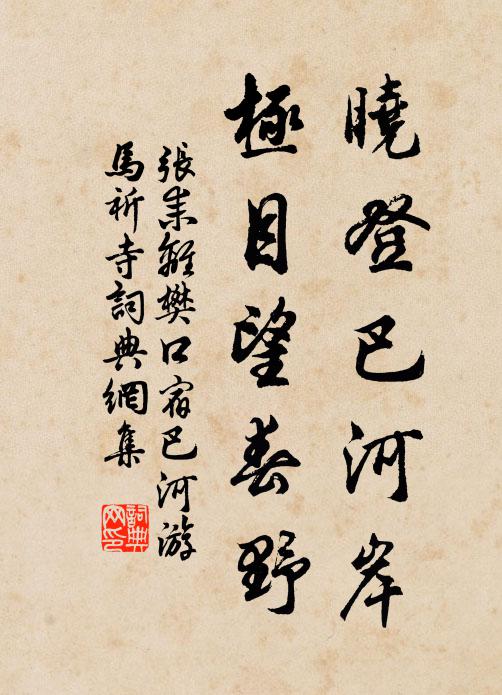 曉登巴河岸
極目望春野
張耒離樊口宿巴河游
馬祈寺詞典網集
詞典
网印